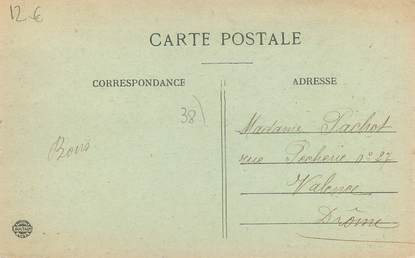 12 €
CARTE POSTALE
CORRESPONDANCE
ADRESSE
38)
Madame Pachot
rue Pêcherie n° 27
Valence
Drôme